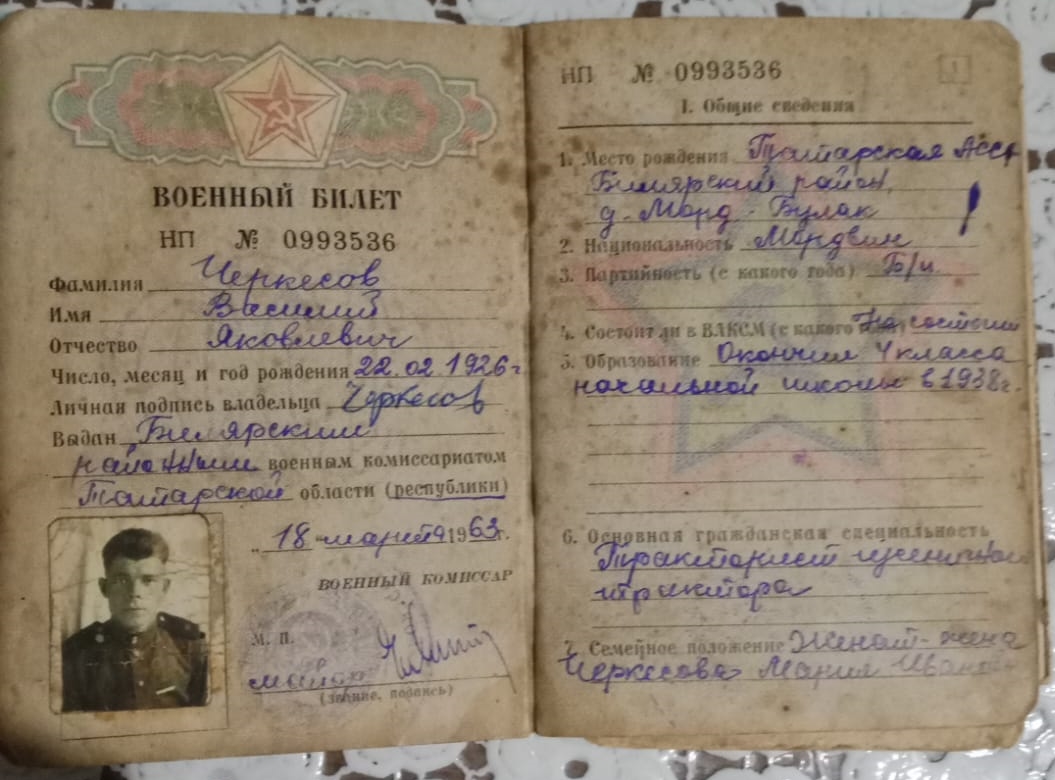 ВОЕННЫЙ БИЛЕТ
НП № 0993536
Фамилия Черкесов
Имя Василий
Отчество Яковлевич
Число, месяц и год рождения 22.02.1926г
Личная подпись владельца Черкесов
Выдан Билярским
районным военным комиссариатом
Татарской области (республики)
„18" марта 1963г.
ВОЕННЫЙ КОМИССАР
М. П.
майор
(звание, подпись)
НП № 0993536
1
I. Общие сведения
1. Место рождения Татарская АССР
Билярский район,
д. Морд-Булак
2. Национальность Мордвин
3. Партийность (с какого года) Б/п
4. Состоит ли в ВЛКСМ (с какого Не состоит
5. Образование Окончил 4 класса
начальной школы в 1938г.
6. Основная гражданская специальность
Тракторист гусеничного
трактора
7. Семейное положение Женат - жена
Черкесова Мария Иван